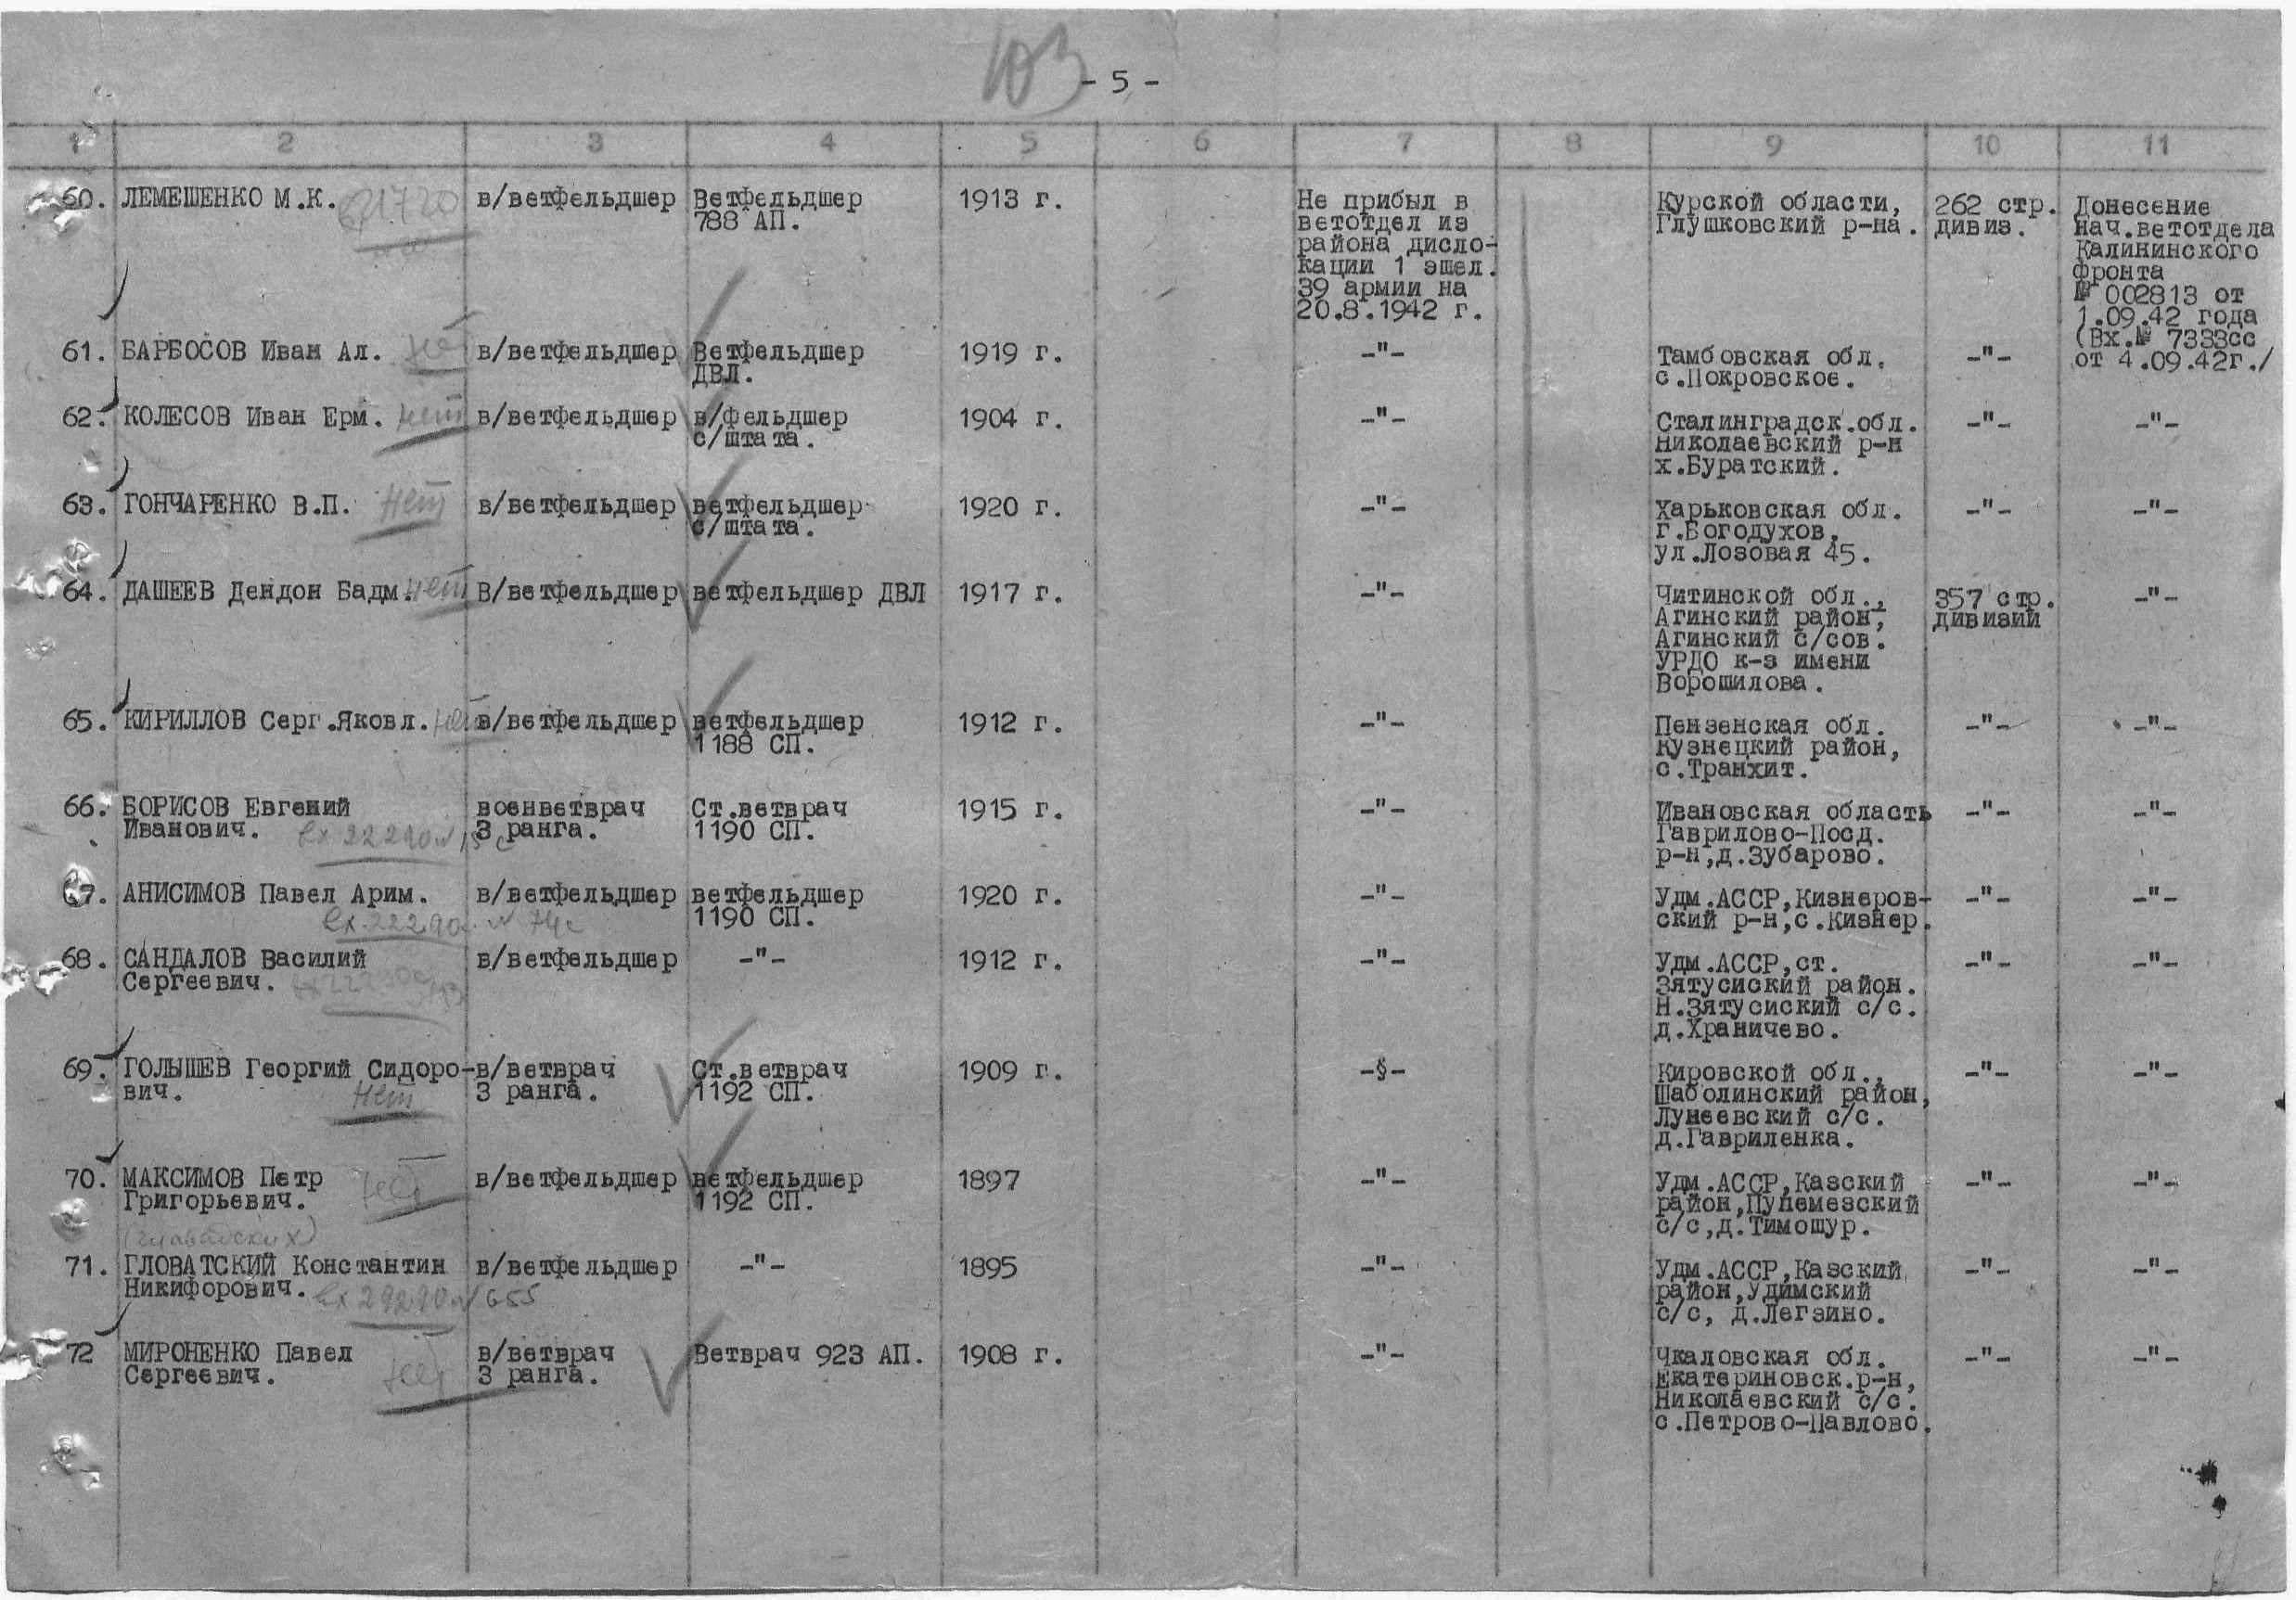 103
- 5 -
1 2 3 4 5 6 7 8 9 10 11
60. ЛЕМЕШЕНКО М.К. в/ветфельдшер Ветфельдшер 1913 г. Не прибыл в Курской области, 262 стр. Донесение
788 АП. ветотдел из Глушковский р-на. дивиз. нач.ветотдела
района дисло- Калининского
кации 1 эшел. фронта
39 армии на № 002813 от
20.8.1942 г. 1.09.42 года
(Вх.№ 7333сс
от 4.09.42г./
61. БАРБОСОВ Иван Ал. нет в/ветфельдшер Ветфельдшер 1919 г. -"- Тамбовская обл. -"-
ДВЛ. с.Покровское.
62. КОЛЕСОВ Иван Ерм. нет в/ветфельдшер в/фельдшер 1904 г. -"- Сталинградск.обл. -"- -"-
с/штата. Николаевский р-н
х.Буратский.
63. ГОНЧАРЕНКО В.П. нет в/ветфельдшер ветфельдшер 1920 г. -"- Харьковская обл. -"- -"-
с/штата. г.Богодухов,
ул.Лозовая 45.
64. ДАШЕЕВ Дендон Бадм. нет В/ветфельдшер ветфельдшер ДВЛ 1917 г. -"- Читинской обл., 357 стр. -"-
Агинский район, дивизии
Агинский с/сов.
УРДО к-з имени
Ворошилова.
65. КИРИЛЛОВ Серг.Яковл. нет в/ветфельдшер ветфельдшер 1912 г. -"- Пензенская обл. -"- -"-
1188 СП. Кузнецкий район,
с.Транхит.
66. БОРИСОВ Евгений военветврач Ст.ветврач 1915 г. -"- Ивановская область -"- -"-
Иванович. 3 ранга. 1190 СП. Гаврилово-Посд.
р-н,д.Зубарово.
67. АНИСИМОВ Павел Арим. в/ветфельдшер ветфельдшер 1920 г. -"- Удм.АССР,Кизнеров- -"- -"-
1190 СП. ский р-н,с.Кизнер.
68. САНДАЛОВ Василий в/ветфельдшер -"- 1912 г. -"- Удм.АССР,ст. -"- -"-
Сергеевич. Зятусиский район.
Н.Зятусиский с/с.
д.Храничево.
69. ГОЛЫШЕВ Георгий Сидоро- в/ветврач Ст.ветврач 1909 г. -§- Кировской обл., -"- -"-
вич. нет 3 ранга. 1192 СП. Шаболинский район,
Лунеевский с/с.
д.Гавриленка.
70. МАКСИМОВ Петр нет в/ветфельдшер ветфельдшер 1897 -"- Удм.АССР,Казский -"- -"-
Григорьевич. 1192 СП. район,Пунемезский
с/с,д.Тимошур.
71. ГЛОВАТСКИЙ Константин в/ветфельдшер -"- 1895 -"- Удм.АССР,Казский -"- -"-
Никифорович. район,Удимский
с/с, д.Легзино.
72 МИРОНЕНКО Павел нет в/ветврач Ветврач 923 АП. 1908 г. -"- Чкаловская обл. -"- -"-
Сергеевич. 3 ранга. Екатериновск.р-н,
Николаевский с/с.
с.Петрово-Павлово.